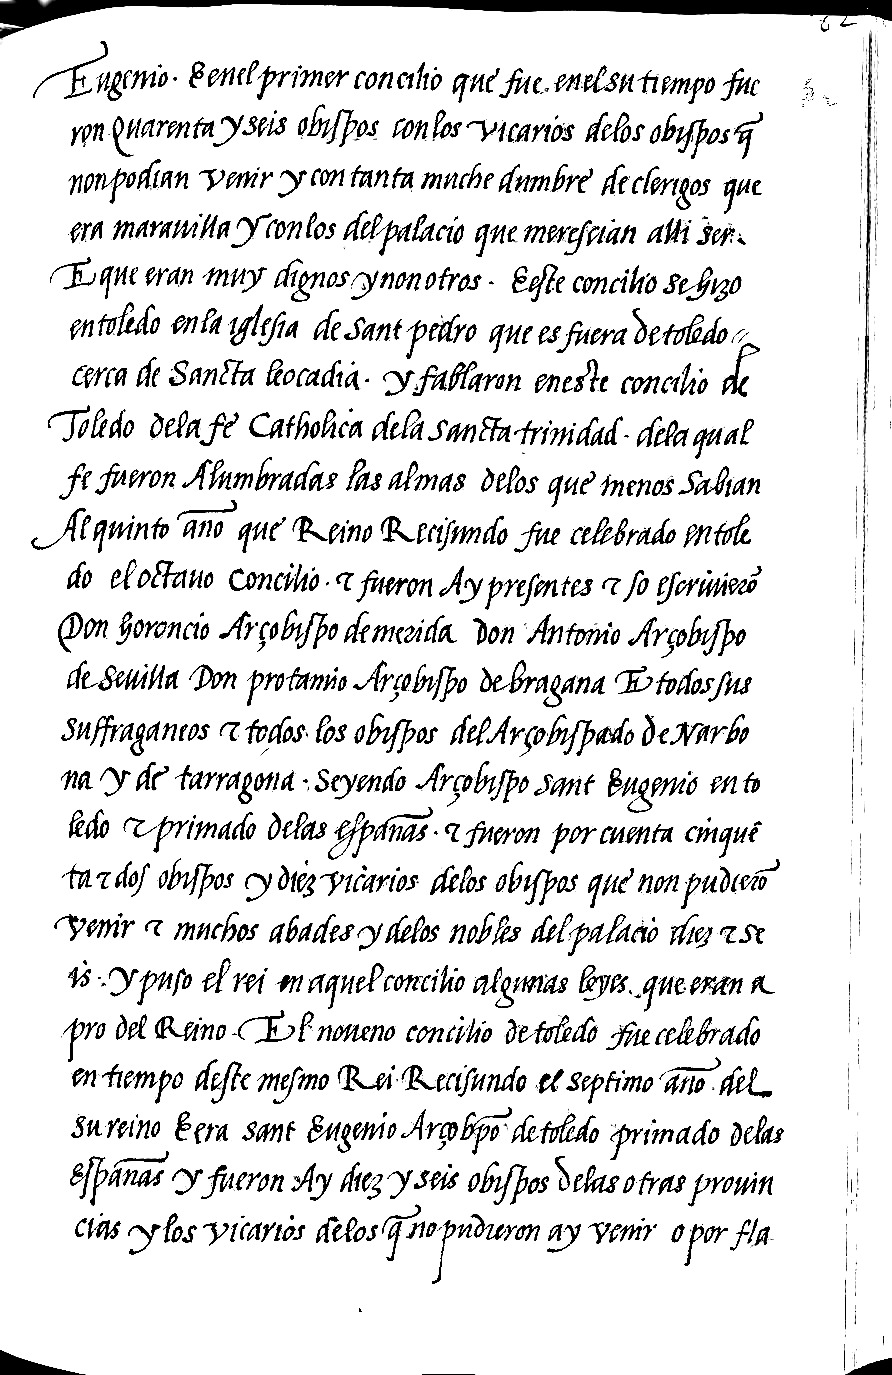 62
Eugenio. E enel primer concilio que fue enel su tiempo fue
ron Quarenta y seis obispos con los vicarios delos obispos q̃
non podian venir y con tanta muchedumbre de clerigos que
era marauilla y con los del palacio que meresçian alli ser.
E que eran muy dignos y non otros. E este concilio se hizo
en toledo en la iglesia de Sant pedro que es fuera de toledo
cerca de Sancta leocadia. y fablaron en este concilio de
Toledo dela fe Catholica dela sancta trinidad. dela qual
fe fueron Alumbradas las almas delos que menos Sabian
Al quinto año que Reino Recisundo fue celebrado en tole
do el octauo Concilio. τ fueron Ay presentes τ so escriuierõ
Don horoncio Arçobispo de merida Don Antonio Arçobispo
de Seuilla Don protamio Arçobispo de bragana E todos sus
suffraganeos τ todos los obispos del Arçobispado de Narbo
na y de tarragona. Seyendo Arçobispo sant Eugenio en to
ledo τ primado delas españas. τ fueron por cuenta cinquẽ
ta τ dos obispos y diez vicarios delos obispos que non pudierõ
venir τ muchos abades y delos nobles del palacio diez τ se
is. y puso el rei en aquel concilio algunas leyes. que eran a
pro del Reino. El noueno concilio de toledo fue celebrado
en tiempo deste mesmo Rei Recisundo el septimo año del
su reino E era sant Eugenio Arçobpõ de toledo primado delas
españas y fueron Ay diez y seis obispos delas otras prouin
cias y los vicarios delos q̃ no pudieron ay venir o por fla